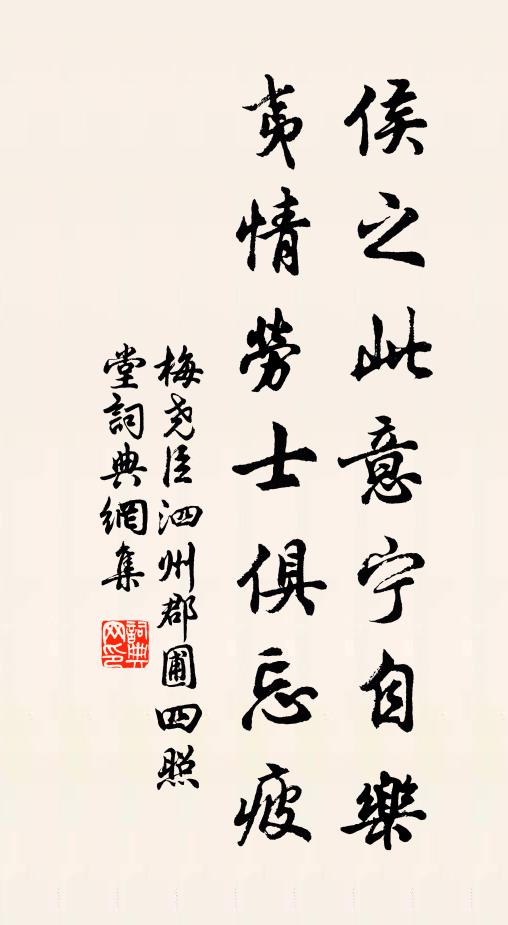 侯之此意宁自樂
夷情勞士俱忘疲
梅尧臣泗州郡圃四照
堂詞典網集
詞典网印